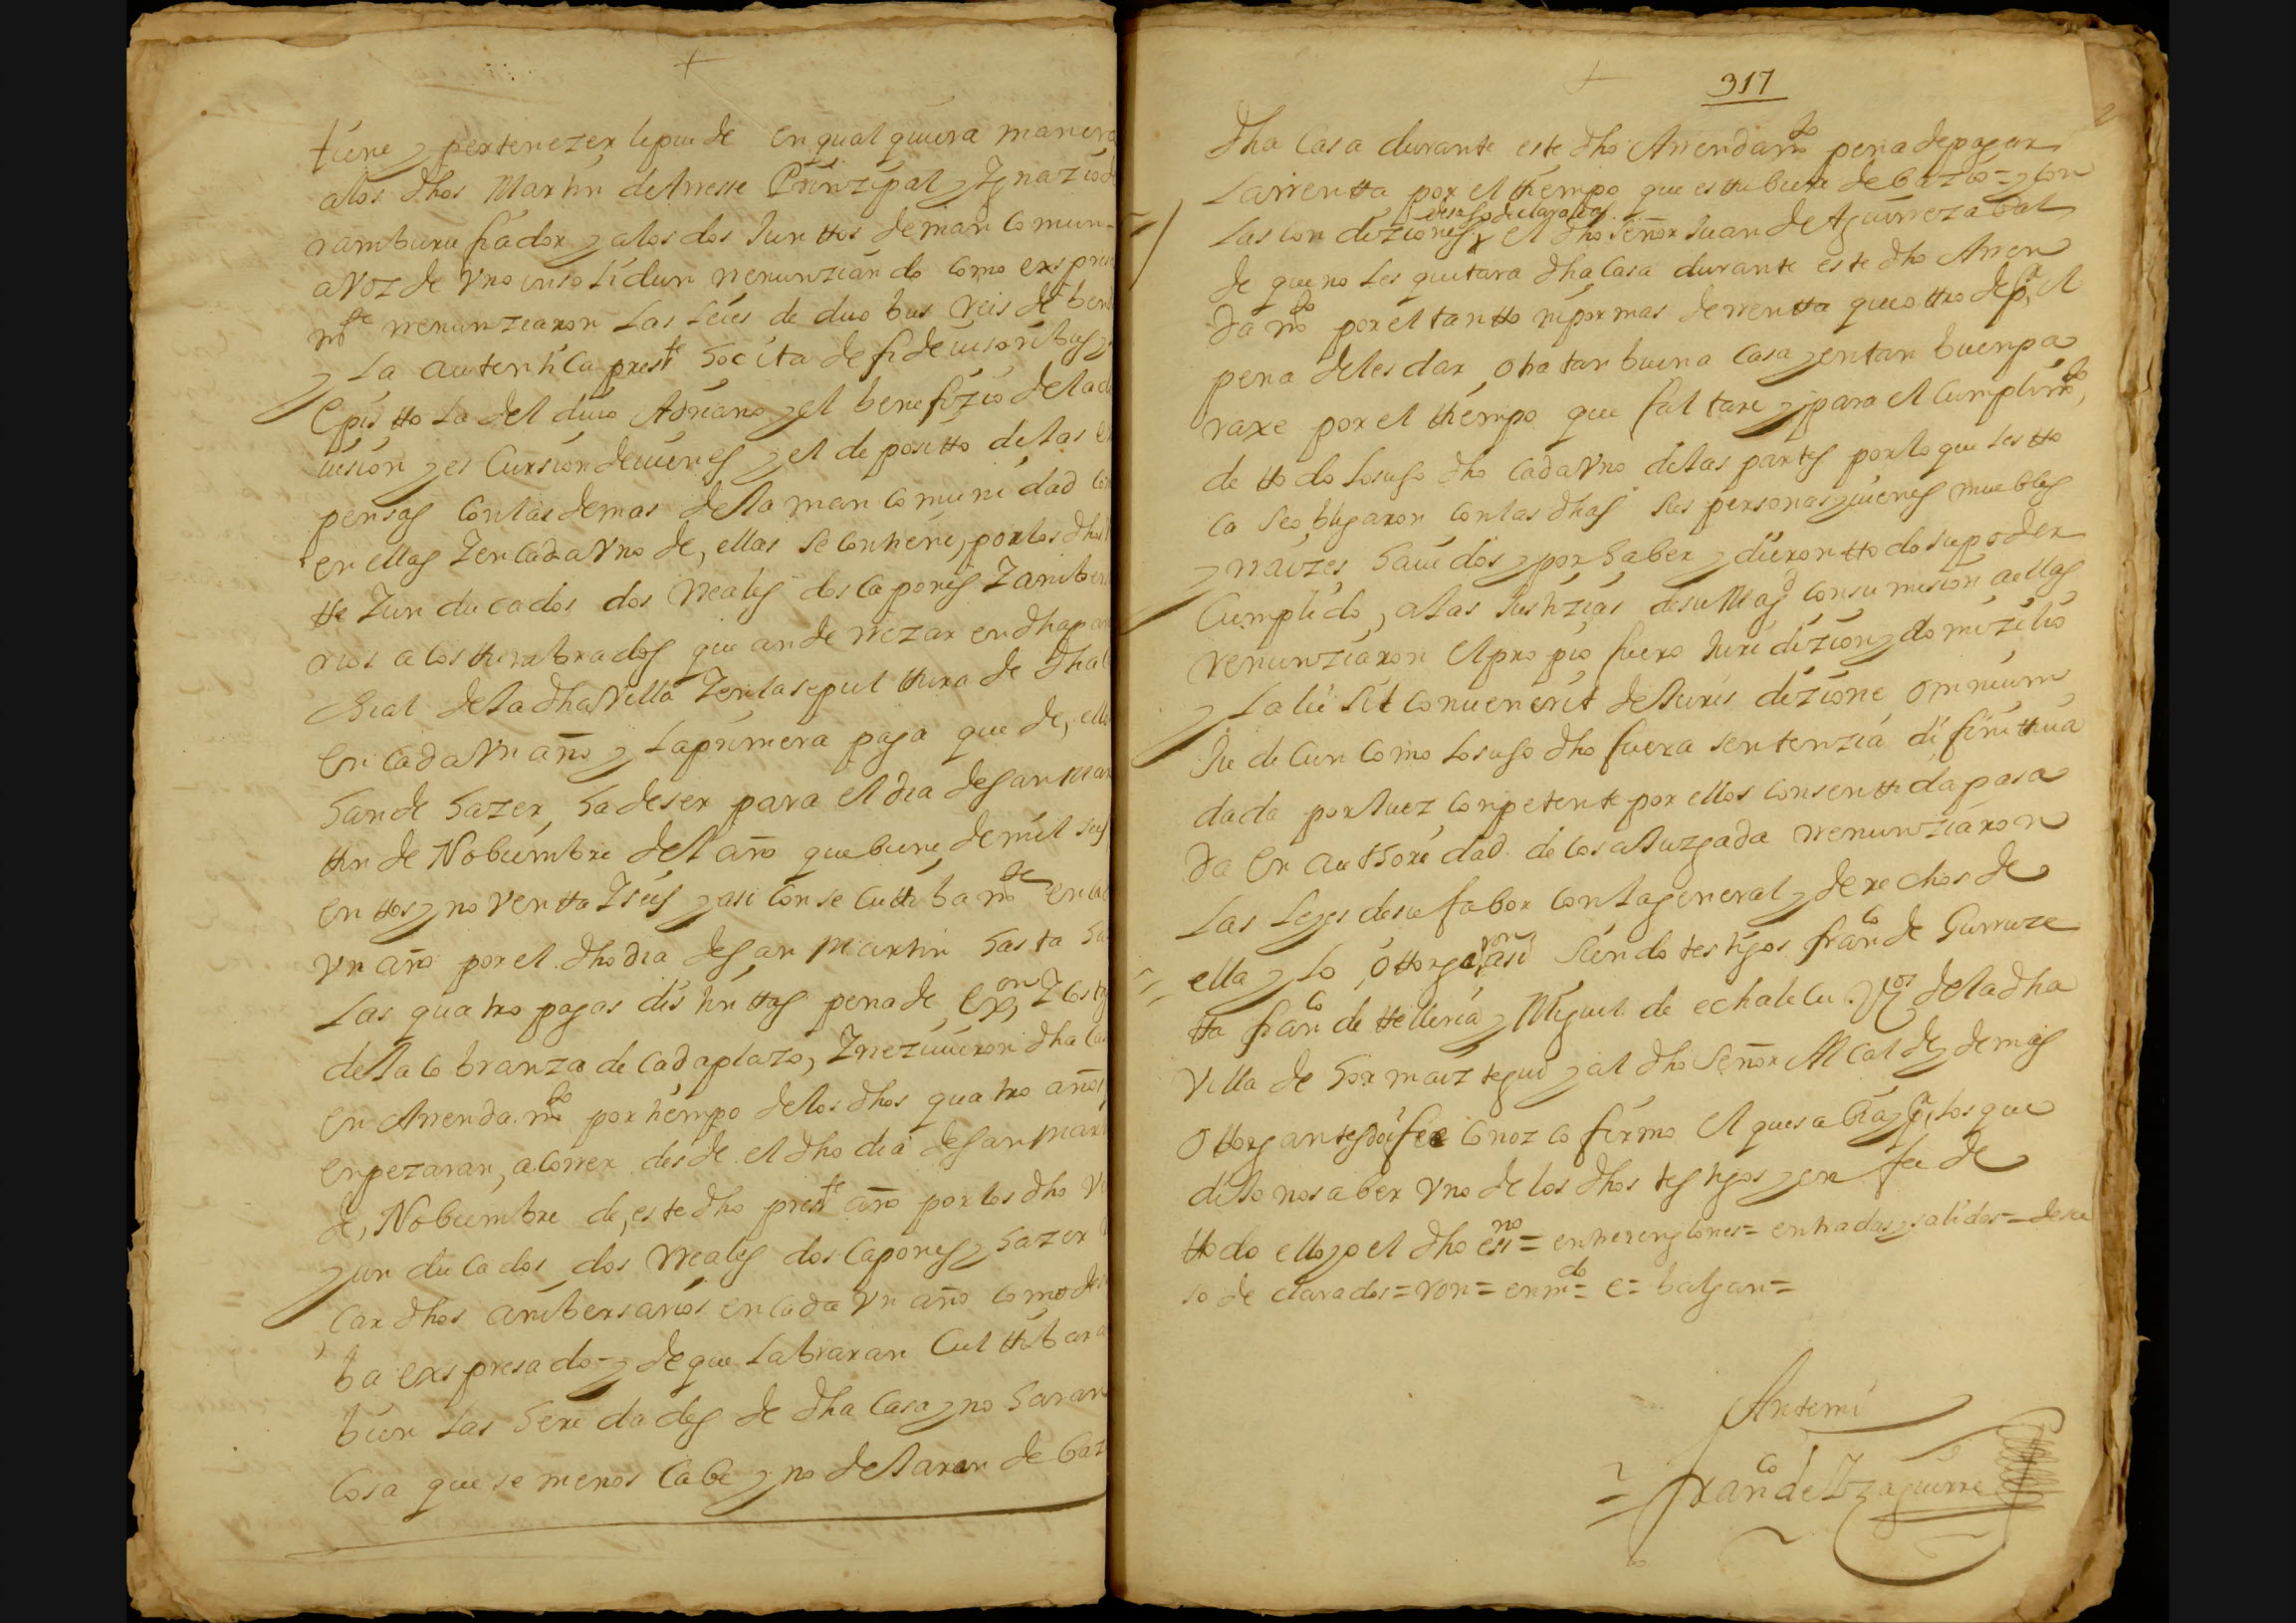 tiene y pertenezer le puede en qualquiera manera
a los dhos Martin de Arresse Prinzipal y Ygnazio de
ramburu fiador y a los dos Junttos de man comun
a voz de Vno insolidun rrenunziando como expressa
mte rrenunziaron las leies de duobus rreis de
y la autentica preste hocita de fideiusoribus y
episttola del divo Adriano y el benefizio de la
uision y escursion de uienes y el depositto de las
pensas con las demas de la mancomunidad
en ellas Y en cada Vno de, ellas se contiene, por los dhos
tte Y un ducados dos rreales dos capones Y aniber
rios acosttumbrados que an de rrezar en dha
chial de la dha Villa Y en la sepulttura de dha
en cada Vn año y la primera paga que de, ellos
han de hazer ha de ser para el dia de San Mar
tin de Nobiembre del año que biene de mil seis
enttos y noventta Y seis y asi consecuttibamte en
Vn año por el dho dia de San Martin hasta
las quatro pagas disttinttas pena de exon Y costas
de la cobranza de cada plazo, Y rrezivieron dha
en Arrendamto por tiempo de los dhos quatro años
enpezaran, a correr desde el dho dia de San Mar
de, Nobiembre de, este dho preste año por los dho
y un ducados dos rreales dos capones y hazer
car dhos anibersarios en cada Vn año como
ba expresado = y de que labraran culttibaran
bien las heredades de dha casa y no haran
cosa que se menoscabe y no dejaran de
317
dha Casa durante este dho Arrendamto pena de pagar
la rrentta por el tiempo que estubiere de bazio = y con
desuso declaradas
las condiziones y el dho Señor Juan de Aguirrezabal
de que no les quitara dha casa durante este dho Arren
damto por el tantto ni por mas de rrentta que otro de pa, el
pena de les dar otra tan buena casa y en tan buen pa
raxe por el tiempo que faltare y para el cumplimto,
de ttodo lo suso dho cada Vno de las partes por lo que les tto
ca se obligaron con las dhas sus personas y uienes muebles
y rraizes hauidos y por haber y dieron ttodo su poder
Cumplido, a las Justizias de su Magd con sumision a ellas
renunziaron el propio fuero Juridizion y domizilio
y la lei sit conuenerit de Juris dizione omnium
Judicun como lo suso dho fuera sentenzia difinittiua
dada por Juez conpetente por ellos consenttida pasa
da en authoridad de cosa Juzgada rrenunziaron
las leyes de su fabor con la general y derechos de
ron
ella y lo, ottorga, asi siendo testigos franco de Gurruze
tta franco de ttelleria y Miguel de echalecu vezos de la dha
Villa de hormaiztegui y al dho Señor Alcalde y demas
ottorgantes doi fee conozco firmo el que sabia y pr, los que
dijo no saber Vno de los dhos testigos y en fee de
ttodo ello yo el dho essno = entrerenglones = entradas y salidas = desu
so declarados = ron = enmdo = e = balgan =
Antemi
franco de Yzaguirre